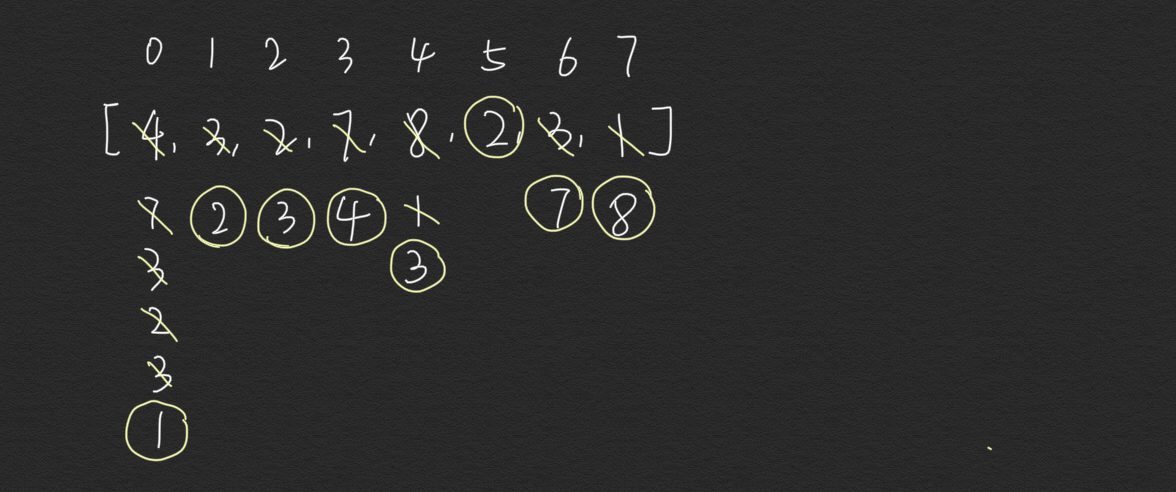 0 1 2 3 4 5 6 7
[4, 3, 2, 7, 8, 2, 3, 1]
7 2 3 4 1 7 8
3 3
2
3
1